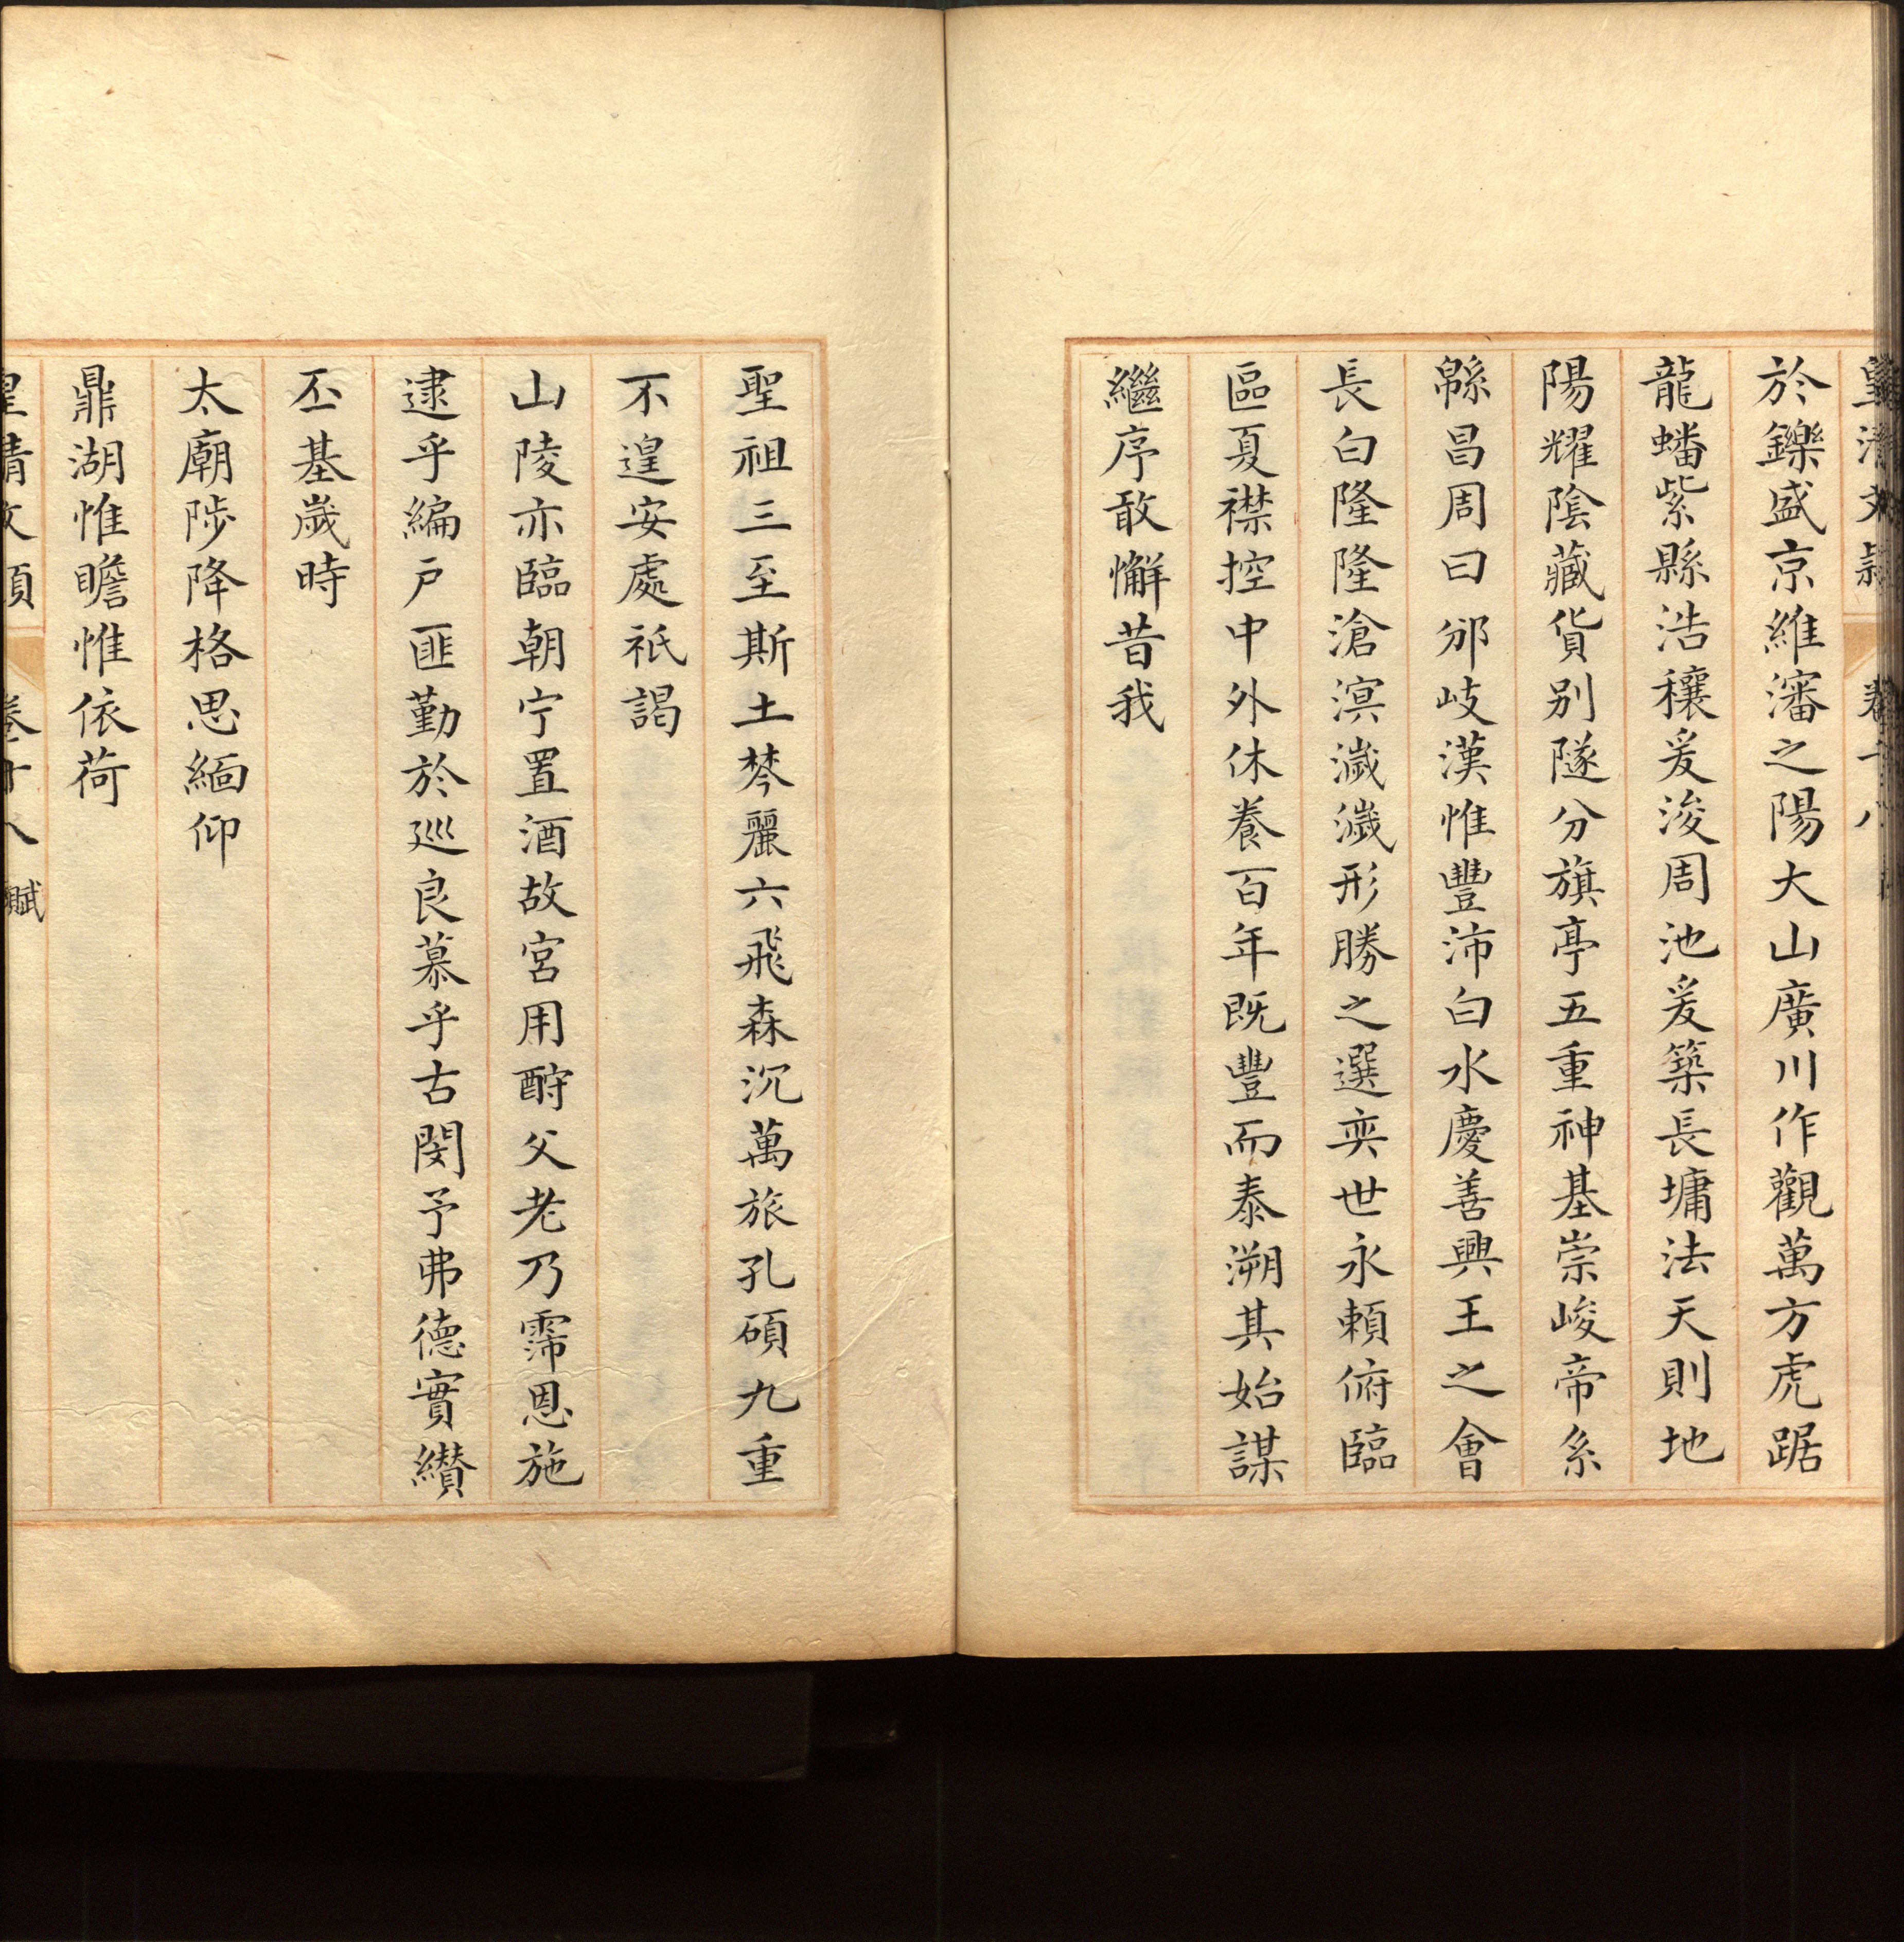 皇清文穎 卷十八
於鑠盛京維瀋之陽大山廣川作觀萬方虎踞
龍蟠紫縣浩穰爰浚周池爰築長墉法天則地
陽耀陰藏貨别隧分旗亭五重神基崇峻帝系
緜昌周曰邠岐漢惟豐沛白水慶善興王之會
長白隆隆滄溟濊濊形勝之選奕世永賴俯臨
區夏襟控中外休養百年既豐而泰溯其始謀
繼序敢懈昔我
聖祖三至斯土棽麗六飛森沉萬旅孔碩九重
不遑安處祇謁
山陵亦臨朝宁置酒故宮用酹父老乃霈恩施
逮乎編戶匪勤於巡良慕乎古閔予弗德實纘
丕基歲時
太廟陟降格思緬仰
鼎湖惟瞻惟依荷
皇清文穎 卷十八 賦